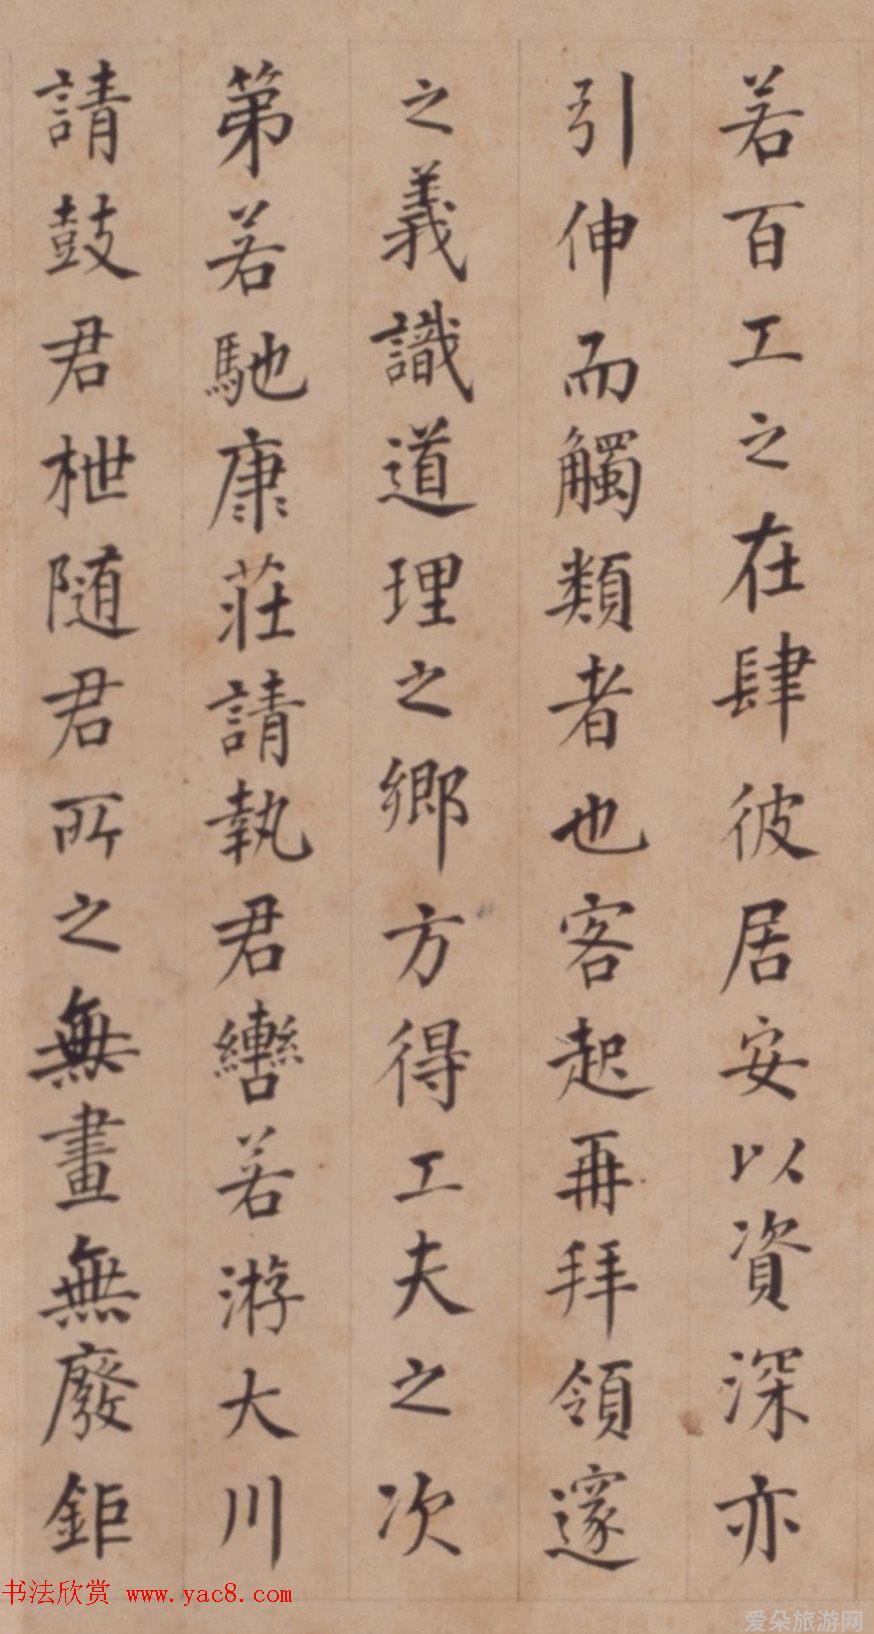 若百工之在肆彼居安以資深亦
引伸而觸類者也客起再拜領邃
之義識道理之鄉方得工夫之次
第若馳康莊請執君轡若游大川
請鼓君枻随君所之無畫無廢鉅
书法欣赏 www.yac8.com
爱朵旅游网